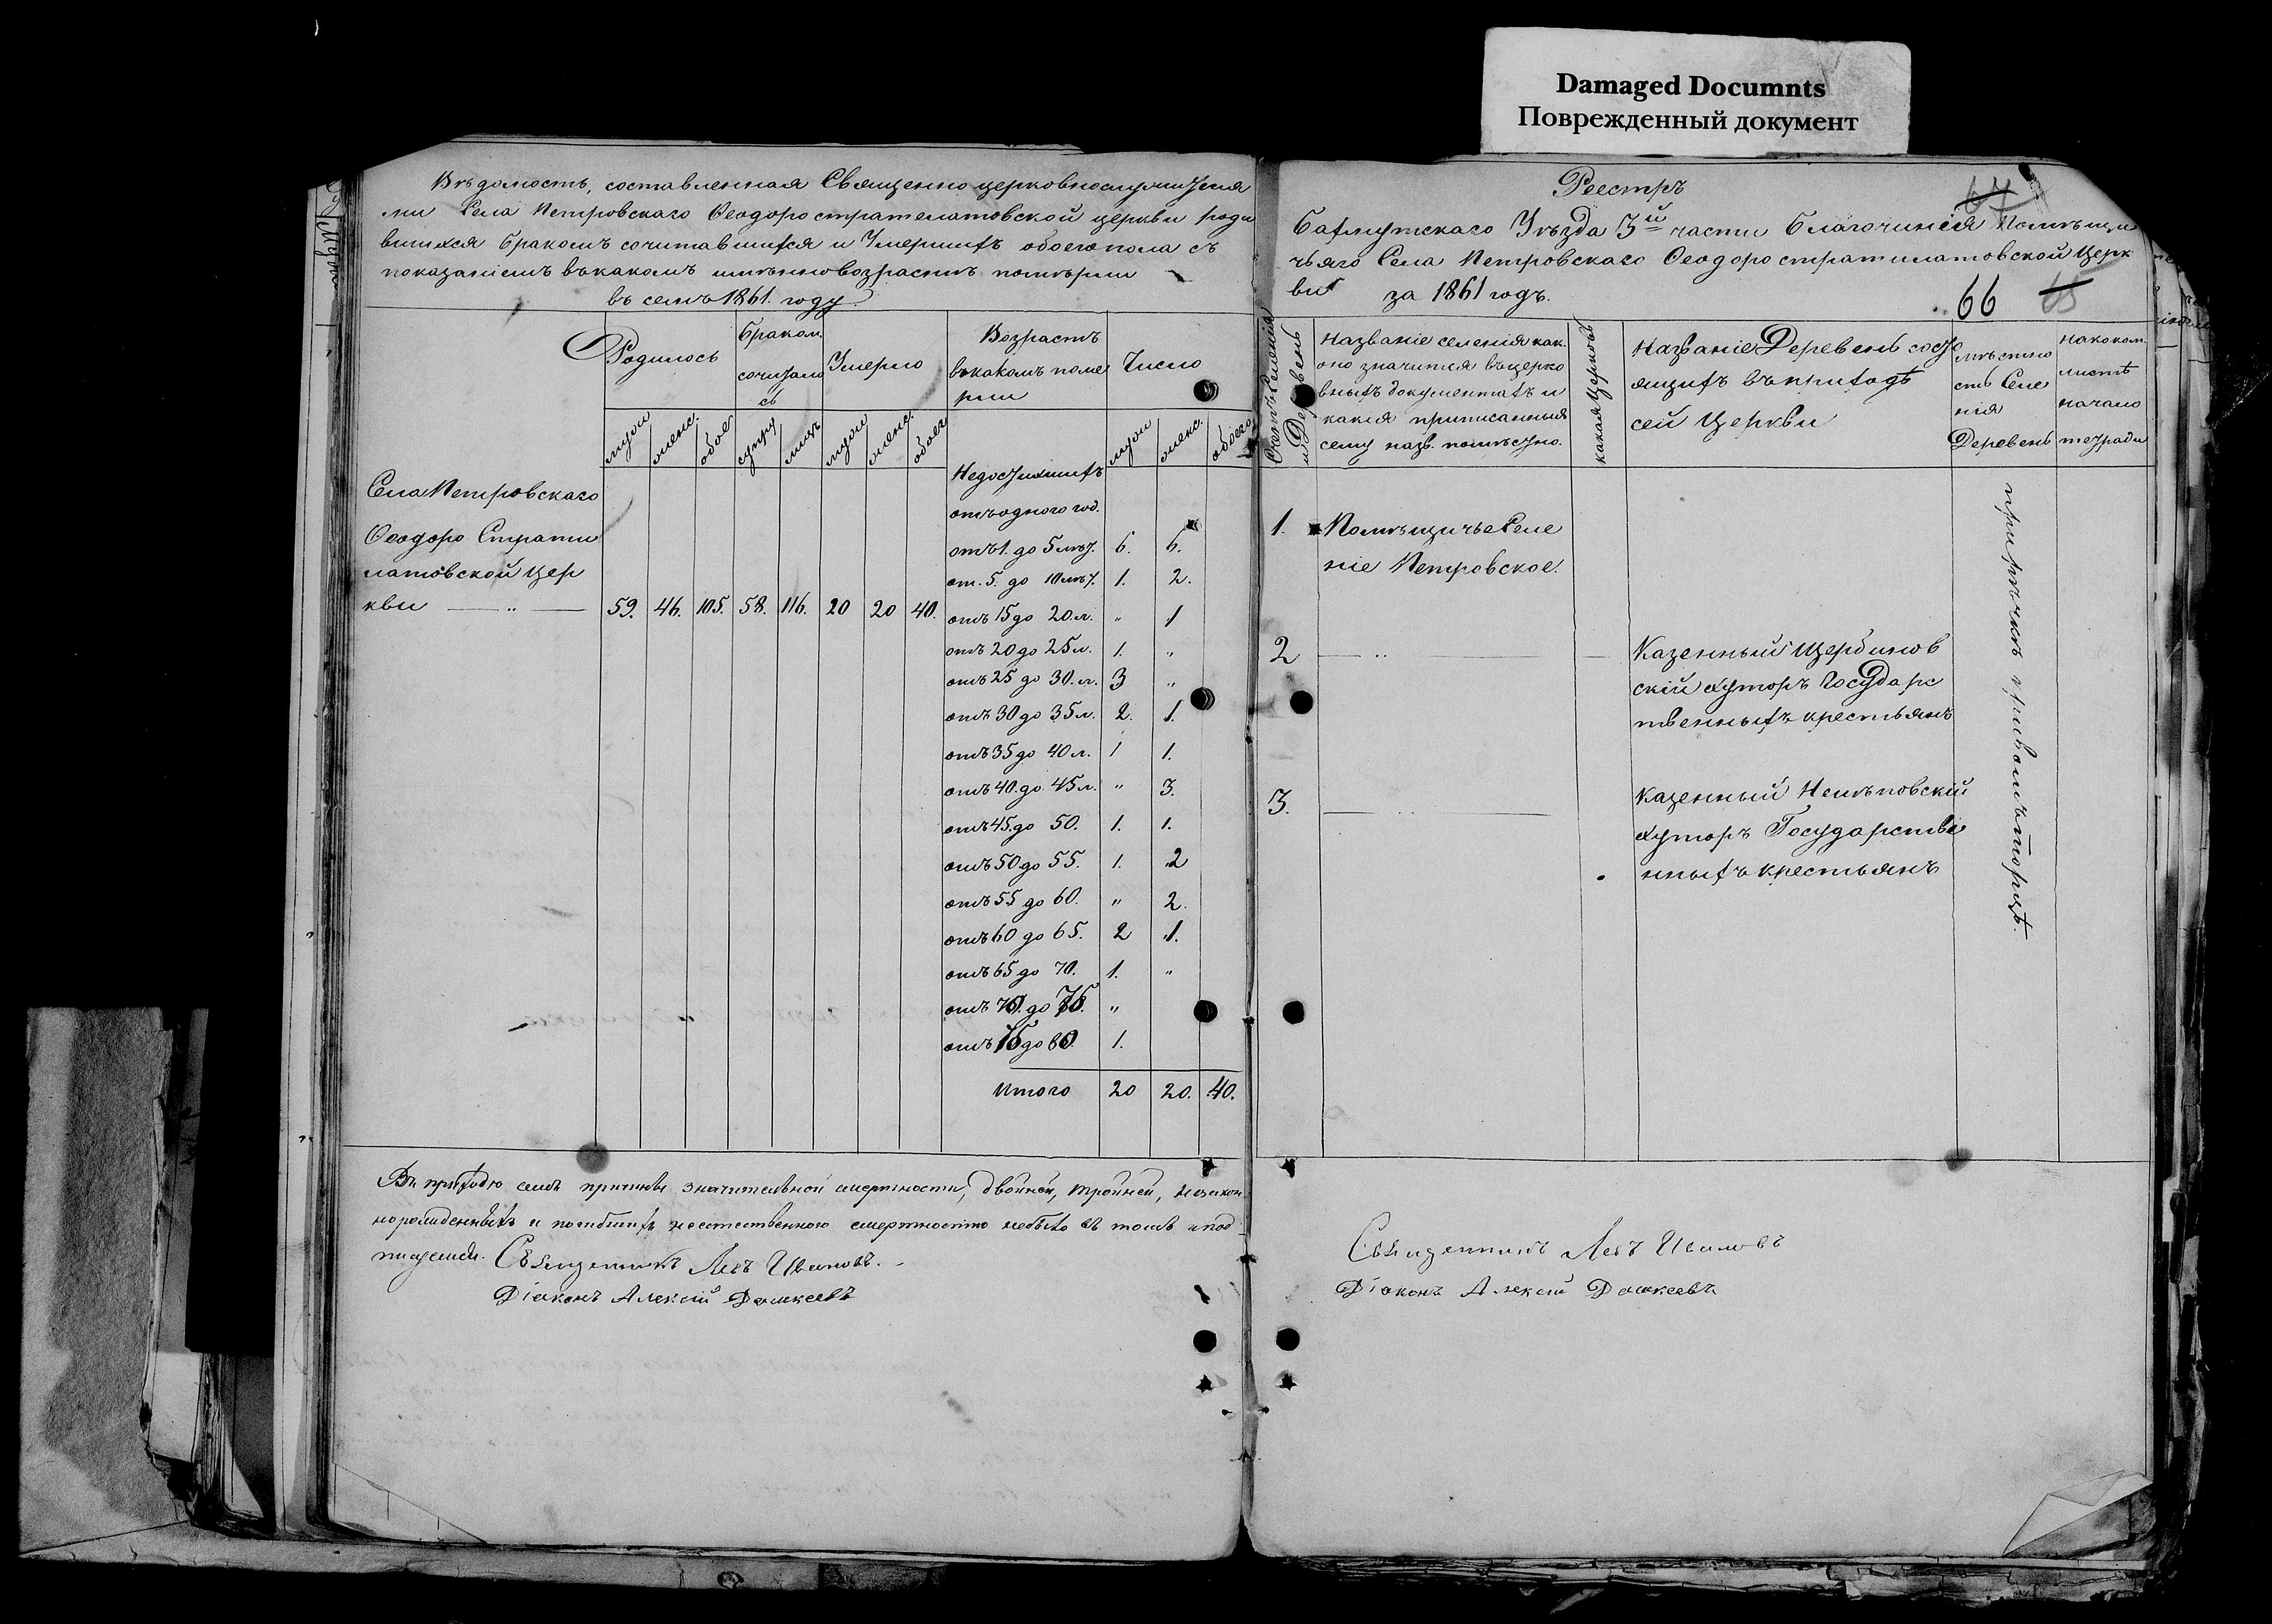 Damaged Documnts
Поврежденный документ
Вѣдомость, составленная Священно церковнослужителя
ми Села Петровскаго Ѳеодоро стрателатовской церкви роди
вшихся бракомъ сочитавшихся и Умершихъ обоего пола съ
показаніемъ въ какомъ именно возрастѣ померли
въ семъ 1861. году
Родилось
Браком.
сочитало
сь
Умерло
Возрастъ
въ какомъ поме
рли
Число
муж
женс.
обое
супру
лицъ
муж
женс.
обоег
муж
женс.
обоего
Села Петровскаго
Ѳеодоро Страти
латовской Цер
кви — „ — 59. 46. 105. 58. 116. 20 20 40.
Недостигшихъ
одного год.
отъ 1. до 5 лѣт. 6. 6.
от. 5. до 10 лѣт. 1. 2.
отъ 15 до 20 л. „ 1
отъ 20 до 25 л. 1. „
отъ 25 до 30. л. 3 „
отъ 30 до 35 л. 2. 1.
отъ 35 до 40 л. 1 1.
отъ 40. до 45 л. „ 3.
отъ 45. до 50. 1. 1.
отъ 50 до 55. 1. 2
отъ 55 до 60. „ 2.
отъ 60 до 65. 2 1.
отъ 65 до 70. 1. „
отъ 70. до 75. „
отъ 75 до 80. 1.
Итого 20 20. 40.
Въ приходѣ семъ причины значительной смертности, двойней, тройней, незакон
норожденныхъ и погибшихъ неестественною смертностію небыло въ томъ и под
писуемся. Священникъ Левъ Ивановъ.
Діаконъ Алексій Дашкеевъ
Реестръ
67
Бахмутскаго Уѣзда 3й части Благочинія Помѣщи
чьяго Села Петровскаго Ѳеодоро стратилатовской Церк
ви за 1861 годъ.
66 65
Счетъ Селенія
и Деревень
Названіе селенія как.
оно значится въ церко
вныхъ документахъ и
какія приписанныя
сему назв. помѣстно.
какая Церковь
Названіе Деревень состо
ящихъ въ приходѣ
сей Церкви
мѣстно
сть Селе
нія
Деревень
на коком.
листѣ
начало
тетради
1. Помѣщичье Селе
ніе Петровское.
2 — „ — Казенный Щербинов
скій хуторъ Государс
твенныхъ крестьянъ
3. — „ — Казенный Нелѣповскій
хуторъ Государстве
нныхъ крестьянъ
при рѣчкѣ Кривомъ торцѣ.
Священникъ Левъ Ивановъ
Діаконъ Алексій Дашкеевъ